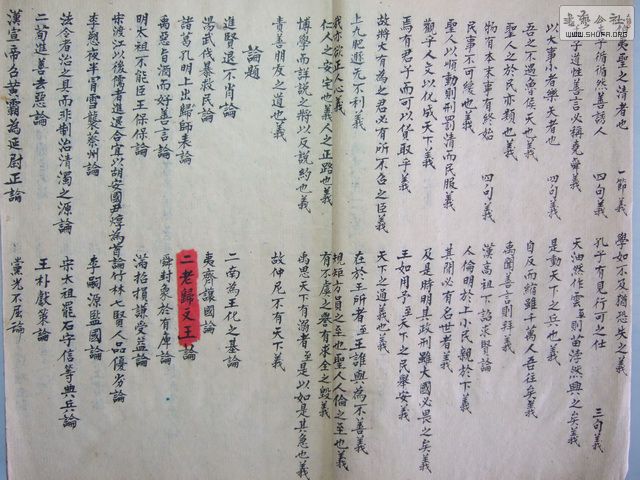 夷聖之清者也 一節義
學如不及猶恐失之義
子循循然善誘人 四句義
孔子有見行可之仕 三句義
子道性善言必稱堯舜義
天油然作雲至則苗浡然興之矣義
以大事小者樂天者也 四句義
是動天下之兵也義
吾之不遇魯侯天也義
自反而縮雖千萬人吾往矣義
聖人之於民亦類也義
禹聞善言則拜義
物有本末事有終始 四句義
漢高祖下詔求賢論
民事不可緩也義
人倫明於上小民親於下義
聖人以順動則刑罰清而民服義
其間必有名世者義
觀乎人文以化成天下義
及是時明其政刑雖大國必畏之矣義
焉有君子而可以貨取乎義
王如用予至天下之民舉安義
故將大有為之君必有所不召之臣義
天下之達道也義
上九肥遯无不利義
在於王所者至王誰與為不善義
我亦欲正人心義
規矩方員之至也聖人人倫之至也義
仁人之安宅也義人之正路也義
有不虞之譽有求全之毀義
博學而詳說之將以反說約也義
禹思天下有溺者至是以如是其急也義
責善朋友之道也義
故仲尼不有天下義
論題
進賢退不肖論
二南為王化之基論
湯武伐暴救民論
夷齊讓國論
諸葛孔明上出師表論
二老歸文王論
禹惡旨酒而好善言論
舜封象於有庳論
明太祖不能臣王保保論
滿招損謙受益論
宋渡江以後儒者進退合宜以胡安國尹焞為首論
竹林七賢人品優劣論
李愬夜半冒雪襲蔡州論
李嗣源監國論
法令者治之具而非制治清濁之源論
宋太祖罷石守信等典兵論
二荀進善去惡論
王朴獻策論
漢宣帝召黃霸為廷尉正論
黨光不屈論
WWW.SHUFA.ORG